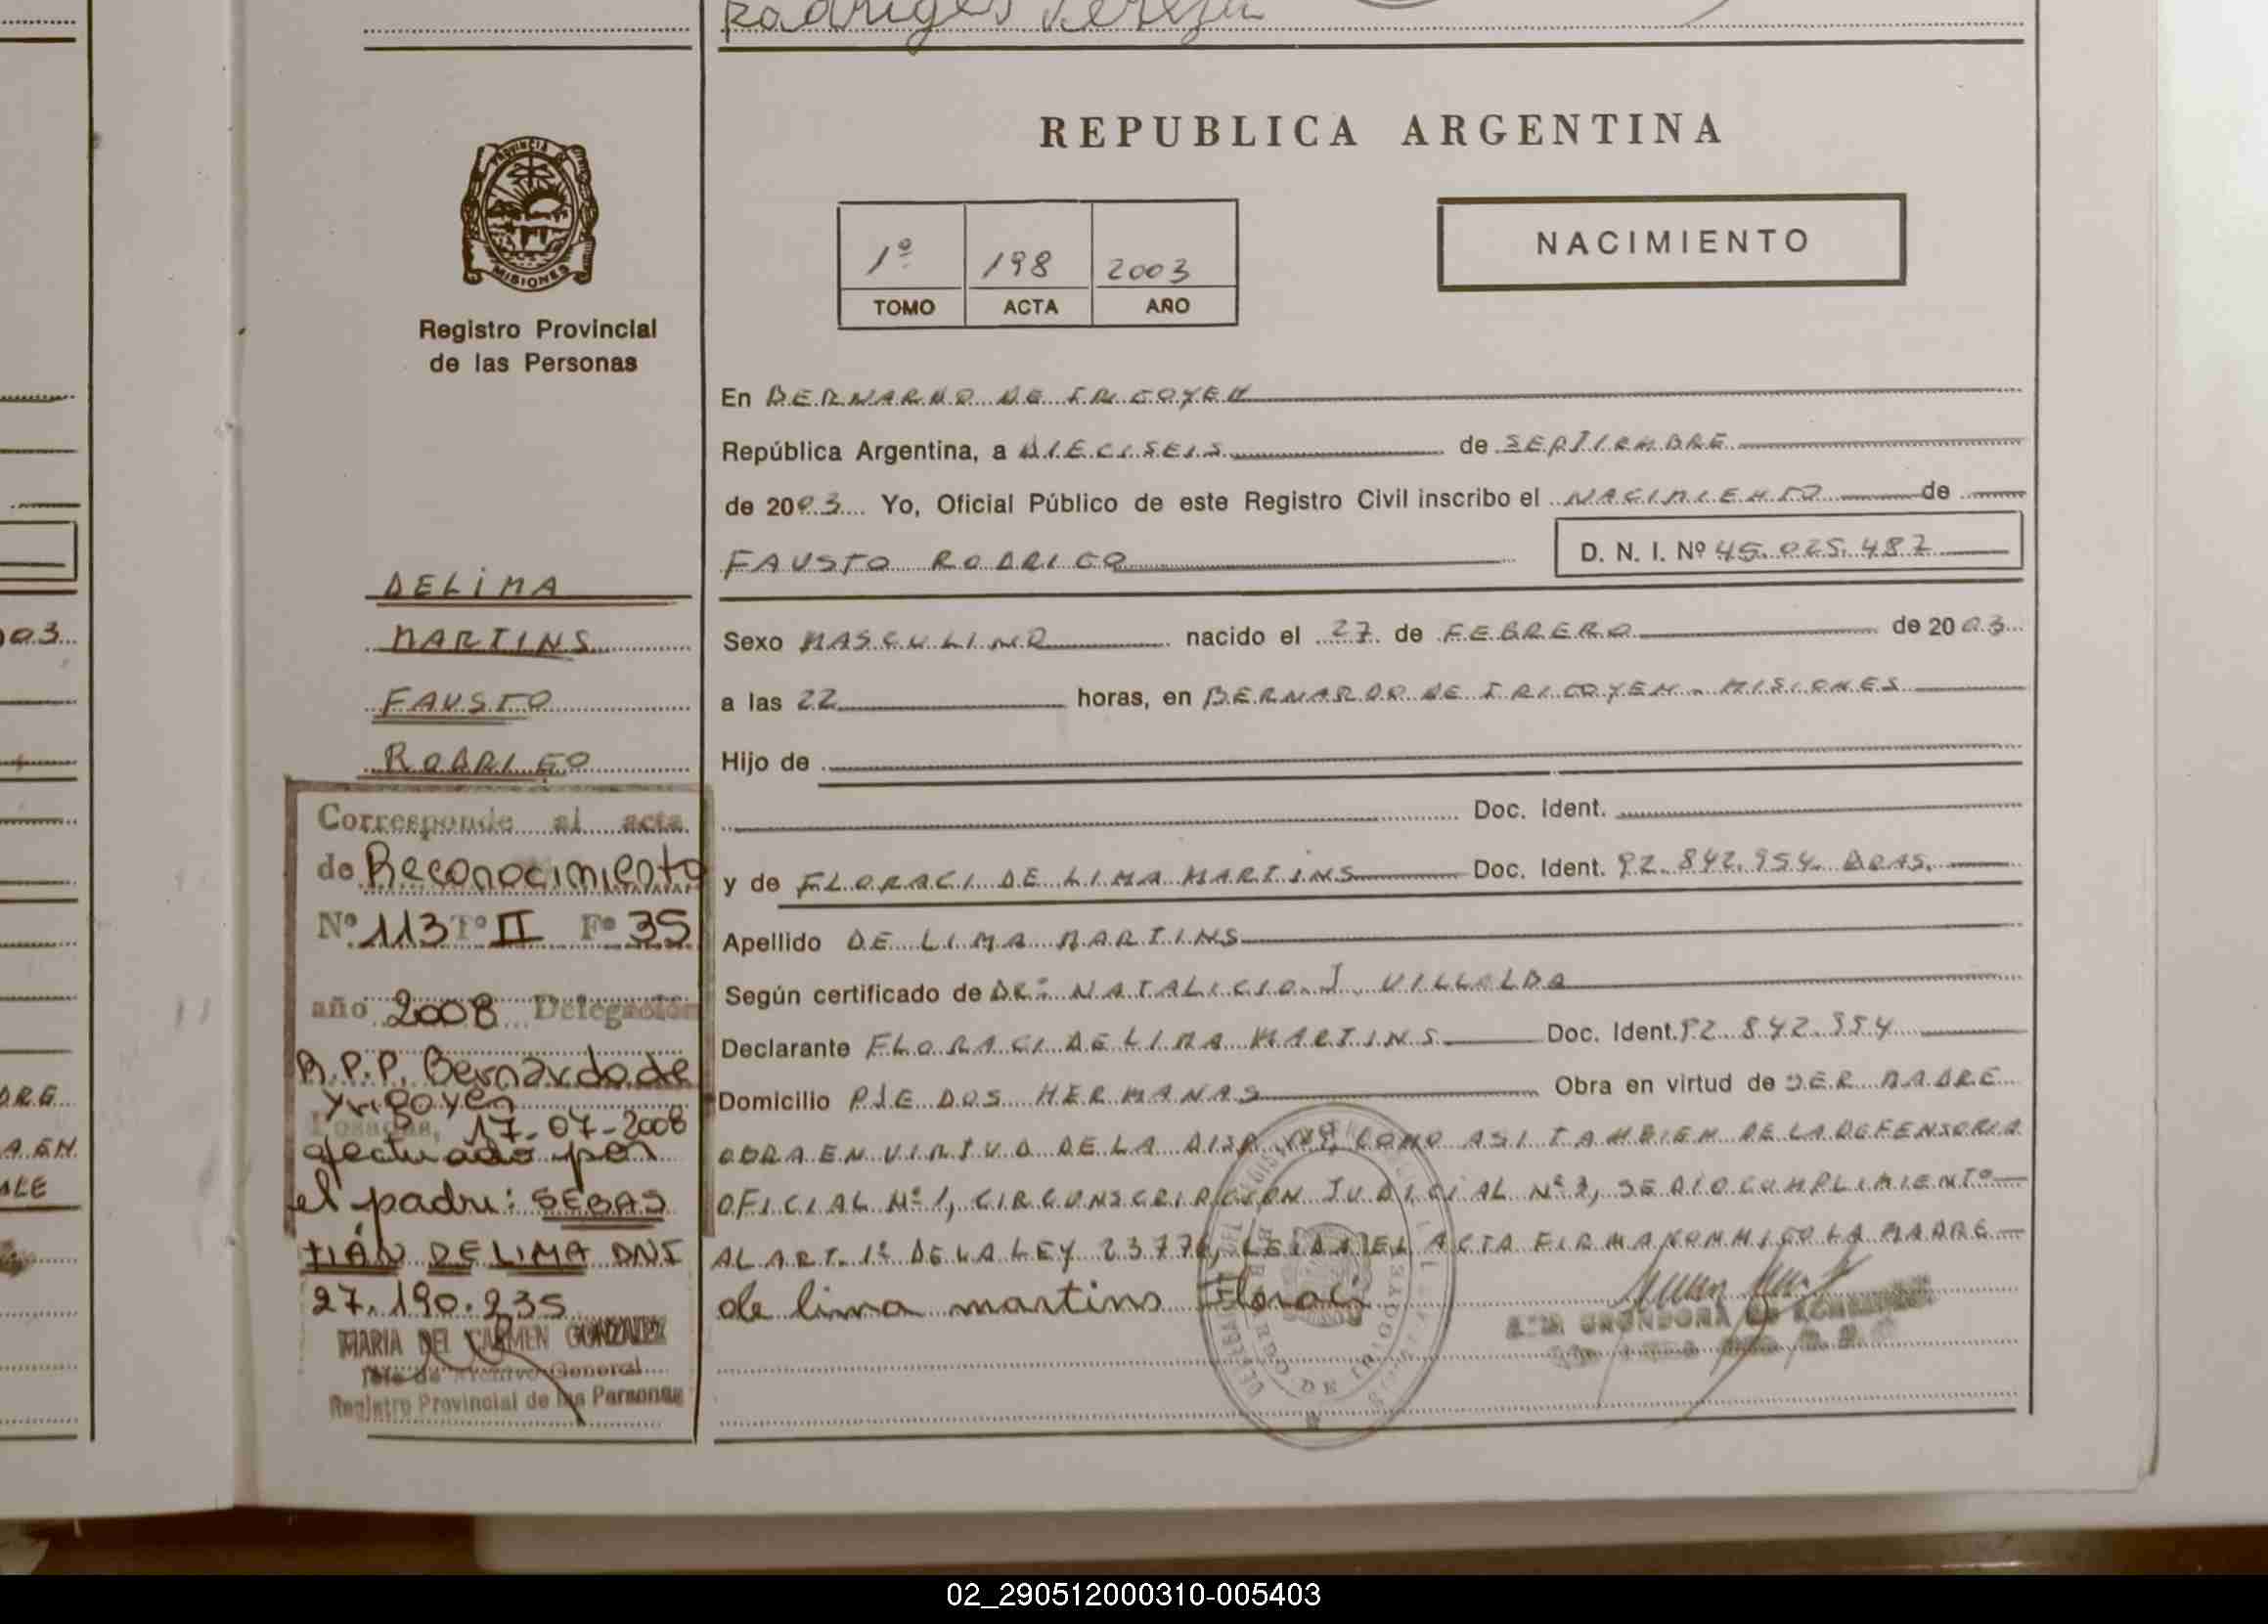 REPUBLICA ARGENTINA
PROVINCIA DE
MISIONES
Registro Provincial
de las Personas
1º 198 2003
TOMO ACTA AÑO
NACIMIENTO
En BERNARDO DE IRIGOYEN
República Argentina, a DIECISEIS de SEPTIEMBRE
de 2003 Yo, Oficial Público de este Registro Civil inscribo el NACIMIENTO de
FAUSTO RODRIGO D. N. I. Nº 45.025.487
Sexo MASCULINO nacido el 27 de FEBRERO de 2003
a las 22 horas, en BERNARDO DE IRIGOYEN - MISIONES
Hijo de
Doc. Ident.
y de FLORACI DE LIMA MARTINS Doc. Ident. 92.842.954
Apellido DE LIMA MARTINS
Según certificado de DR: NATALICIO J. VILLALBA
Declarante FLORACI DE LIMA MARTINS Doc. Ident. 92.842.954
Domicilio PJE DOS HERMANAS Obra en virtud de SER MADRE
OBRA EN VIRTUD DE LA DISP. COMO ASI TAMBIEN DE LA DEFENSORIA
OFICIAL Nº 1, CIRCUNSCRIPCION JUDICIAL Nº 3, SE DIO CUMPLIMIENTO
AL ART. 1º DE LA LEY 23776, LEIDA EL ACTA FIRMA CONMIGO LA MADRE
de lima martins Floraci
DELIMA
MARTINS
FAUSTO
RODRIGO
Corresponde al acta
de Reconocimiento
Nº 113 Tº II Fº 35
año 2008 Delegación
R.P.P. Bernardo de
Yrigoyen
Posadas, 17-07-2008
efectuado por
el padre: SEBAS
TIÁN DE LIMA DNI
27.190.235
MARIA DEL CARMEN GONZALEZ
Jefe de Archivo General
Registro Provincial de las Personas
02_290512000310-005403